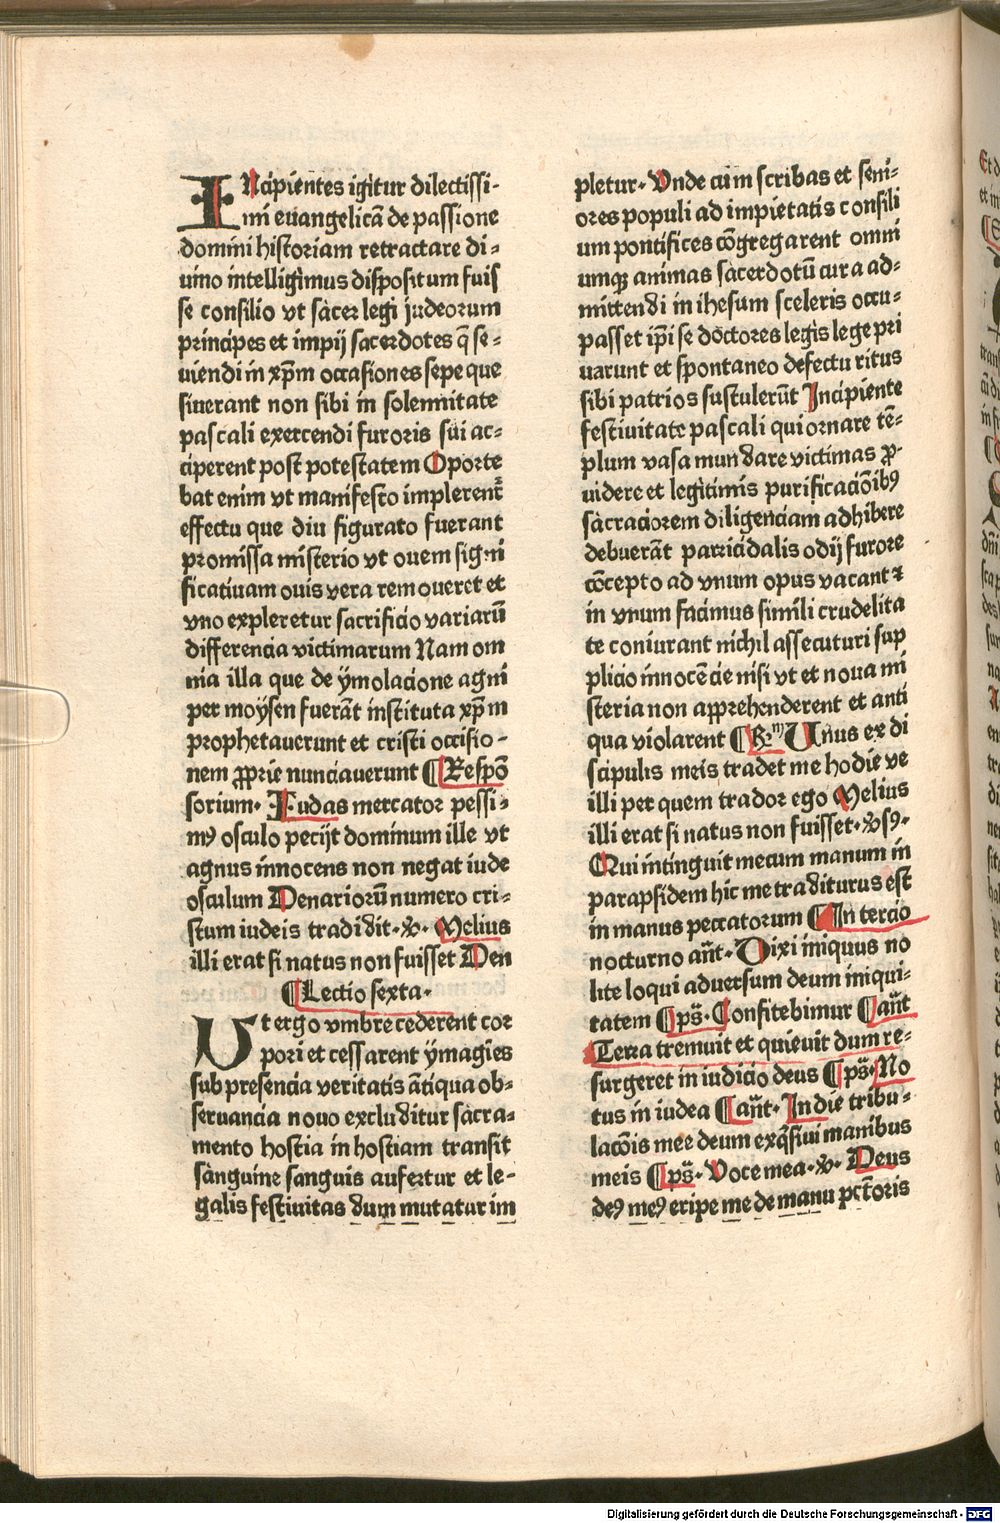 INcipientes igitur dilectissi-
mi euangelicā de passione
domini historiam retractare di-
uino intelligimus dispositum fuis
se consilio vt sacer legi judeorum
principes et impij sacerdotes q̄ se-
uiendi in xp̄m occasiones sepe que
siuerant non sibi in solennitate
pascali exercendi furoris sui ac-
ciperent post potestatem Oporte
bat enim vt manifesto implerent᷑
effectu que diu figurato fuerant
promissa misterio vt ouem signi
ficatiuam ouis vera remoueret et
vno expleretur sacrificio variarū
differencia victimarum Nam om
nia illa que de ymolacione agni
per moysen fuerāt instituta xp̄m
prophetauerunt et cristi occisio-
nem ꝓprie nunciauerunt ¶ Respō
sorium. Judas mercator pessi-
mꝰ osculo pecijt dominum ille vt
agnus innocens non negat iude
osculum Denariorū numero cri-
stum iudeis tradidit. ꝟ. Melius
illi erat si natus non fuisset Den
¶ Lectio sexta.
Vt ergo vmbre cederent cor
pori et cessarent ymagīes
sub presencia veritatis ātiqua ob-
seruancia nouo excluditur sacra-
mento hostia in hostiam transit
sanguine sanguis aufertur et le-
galis festiuitas dum mutatur im
pletur. Vnde cum scribas et seni-
ores populi ad impietatis consili
um pontifices cōgregarent omni
umqꝫ animas sacerdotū cura ad-
mittendi in ihesum sceleris occu-
passet ip̄i se doctores legis lege pri
uarunt et spontaneo defectu ritus
sibi patrios sustulerūt Incipiente
festiuitate pascali qui ornare tē-
plum vasa mundare victimas ꝓ-
uidere et legitimis purificacōibꝰ
sacraciorem diligenciam adhibere
debuerāt parricidalis odij furore
cōcepto ad vnum opus vacant ⁊
in vnum facimus simili crudelita
te coniurant nichil assecuturi sup
plicio innocēcie nisi vt et noua mi
steria non apprehenderent et anti
qua violarent ¶ R.m̄ Unus ex di
scipulis meis tradet me hodie ve
illi per quem trador ego Melius
illi erat si natus non fuisset. ꝟsꝰ.
Qui intinguit mecum manum in
parapsidem hic me traditurus est
in manus peccatorum ¶ In tercio
nocturno an̄t. Dixi iniquus no
lite loqui aduersum deum iniqui-
tatem ¶ ps̄. Confitebimur ¶ an̄t
Terra tremuit et quieuit dum re-
surgeret in iudicio deus ¶ ps̄. No
tus in iudea ¶ an̄t. In die tribu-
lacōis mee deum exq̄siui manibus
meis ¶ ps̄. Voce mea. ꝟ. Deus
deꝰ meꝰ eripe me de manu pctōris
Digitalisierung gefördert durch die Deutsche Forschungsgemeinschaft - DFG